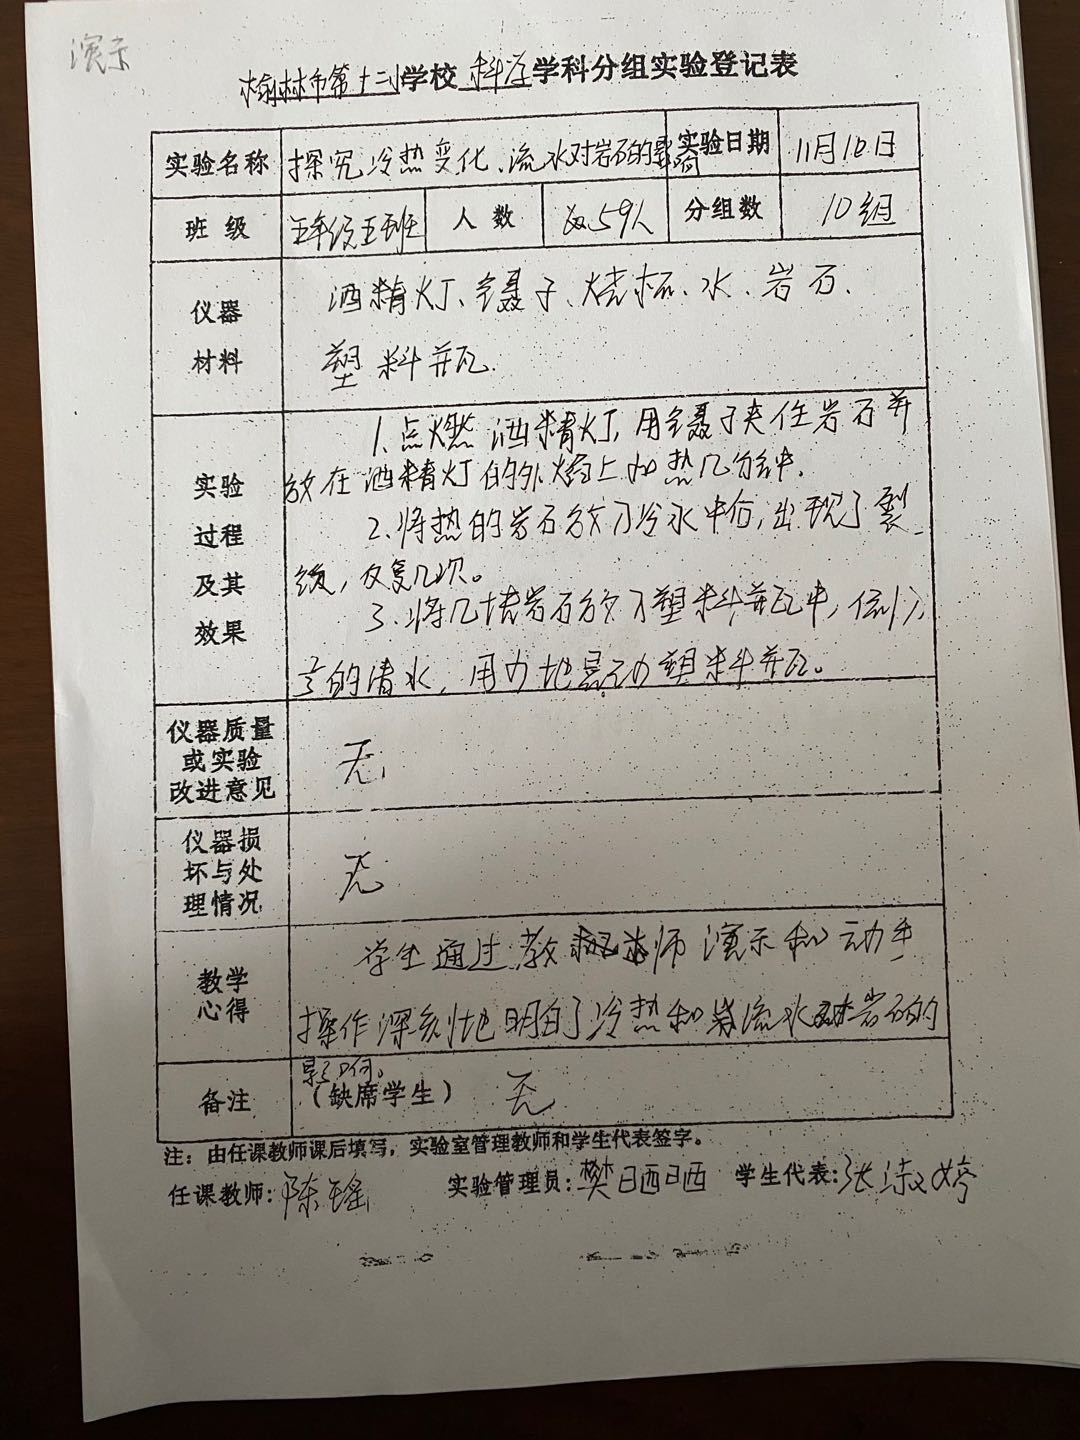 演示
榆林市第十二小学校科学学科分组实验登记表
实验名称 探究冷热变化、流水对岩石的影响 实验日期 11月10日
班级 五年级五班 人数 59人 分组数 10组
仪器 酒精灯、镊子、烧杯、水、岩石、
材料 塑料瓶.
1.点燃酒精灯,用镊子夹住岩石并
实验 放在酒精灯的外焰上加热几分钟.
过程 2.将热的岩石放了冷水中后,出现了裂
及其 缝,反复几次。
效果 3.将几块岩石放了塑料瓶中,
的清水,用力地晃动塑料瓶。
仪器质量
或实验 无
改进意见
仪器损
坏与处 无
理情况
学生通过教师演示和动手
教学
心得 操作深刻地明白了冷热和流水对岩石的
影响。
备注 (缺席学生) 无
注:由任课教师课后填写,实验室管理教师和学生代表签字。
任课教师:陈瑶 实验管理员:樊晒晒 学生代表:张淑婷